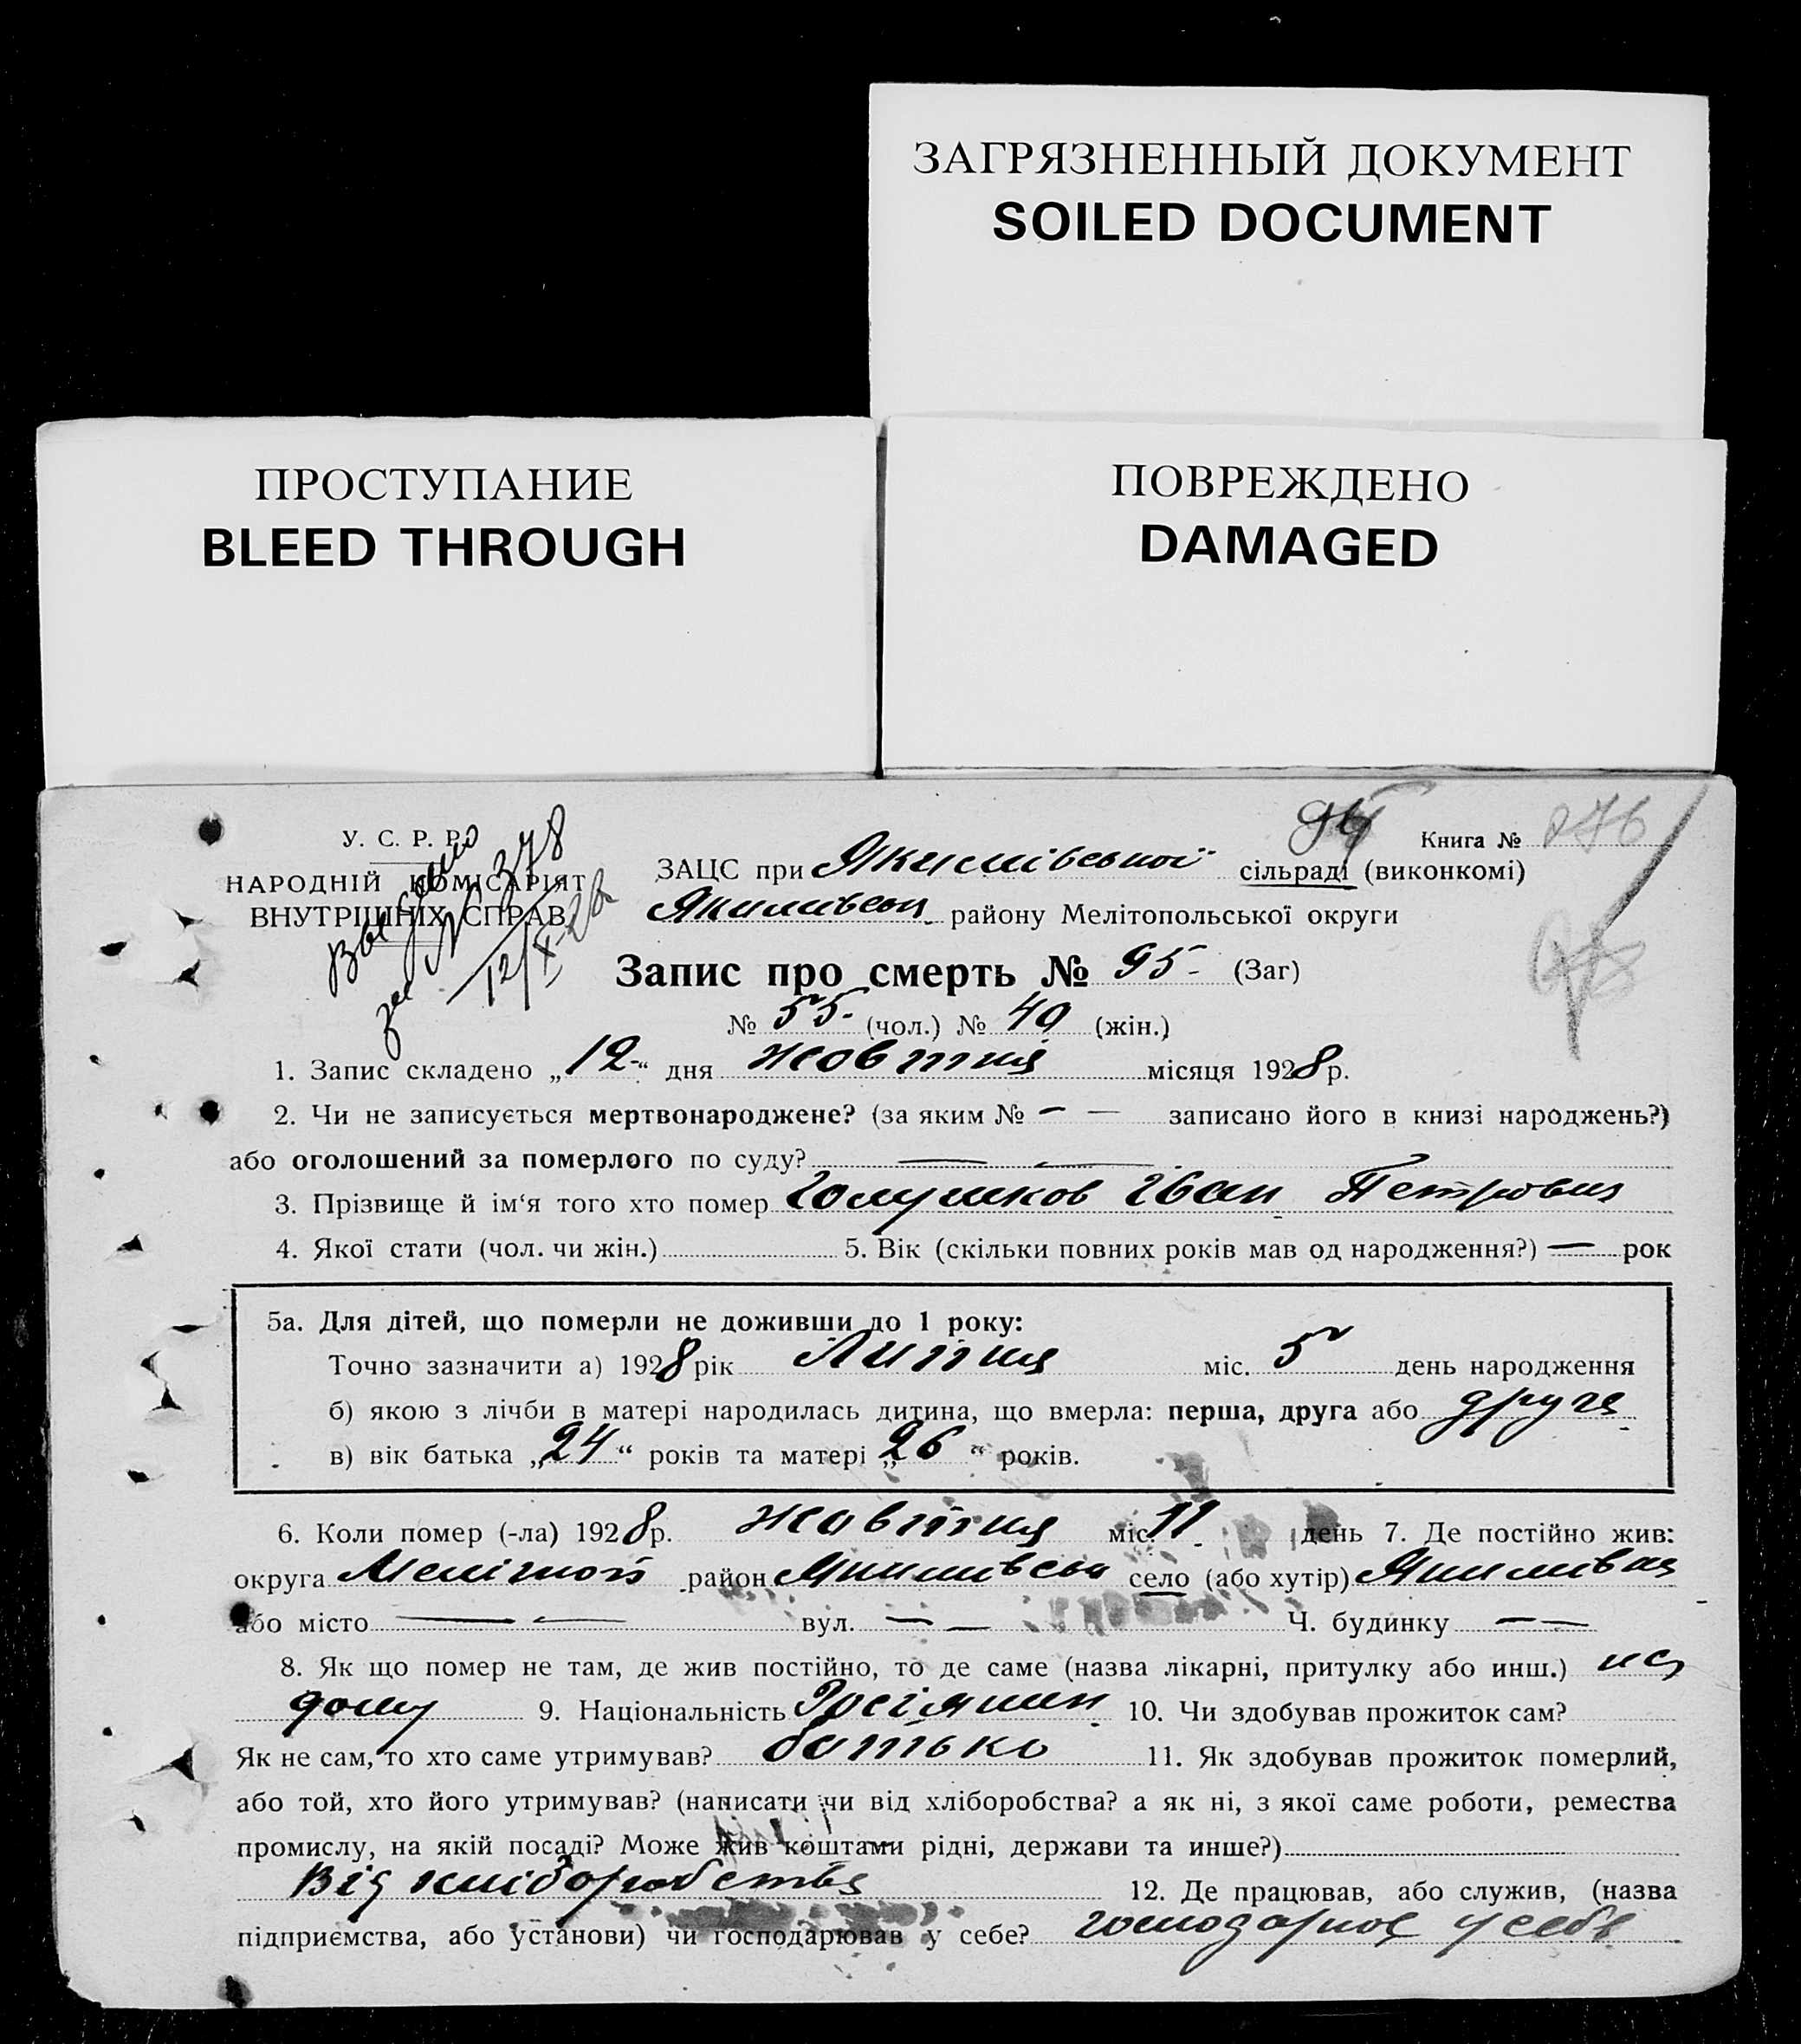 ЗАГРЯЗНЕННЫЙ ДОКУМЕНТ
SOILED DOCUMENT
ПРОСТУПАНИЕ
BLEED THROUGH
ПОВРЕЖДЕНО
DAMAGED
У. С. Р. Р.
НАРОДНІЙ КОМІСАРІЯТ
ВНУТРІШНІХ СПРАВ
Выдано
за № 378
12/X-28
Книга № 276
ЗАЦС при Якимівської сільраді (виконкомі)
Якимівськ району Мелітопольської округи
Запис про смерть № 95 (Заг)
№ 55 (чол.) № 40 (жін.)
1. Запис складено „12" дня жовтня місяця 1928 р.
2. Чи не записується мертвонароджене? (за яким № — — записано його в книзі народжень?)
або оголошений за померлого по суду? — —
3. Прізвище й ім'я того хто помер Іван Петрович
4. Якої стати (чол. чи жін.) 5. Вік (скільки повних років мав од народження?) — рок
5а. Для дітей, що померли не доживши до 1 року:
Точно зазначити а) 1928 рік Липня міс. 5 день народження
б) якою з лічби в матері народилась дитина, що вмерла: перша, друга або друга
в) вік батька „24" років та матері „26" років.
6. Коли помер (-ла) 1928 р. жовтня міс. 11 день 7. Де постійно жив:
округа Мелітпол район Якимівськ село (або хутір) Якимівка
або місто — — вул. — — Ч. будинку — —
8. Як що помер не там, де жив постійно, то де саме (назва лікарні, притулку або инш.) на
дому 9. Національність Росіянин 10. Чи здобував прожиток сам?
Як не сам, то хто саме утримував? батько 11. Як здобував прожиток померлий,
або той, хто його утримував? (написати чи від хліборобства? а як ні, з якої саме роботи, ремества
промислу, на якій посаді? Може жив коштами рідні, держави та инше?)
Від хліборобства 12. Де працював, або служив, (назва
підприємства, або установи) чи господарював у себе? господарює у себе